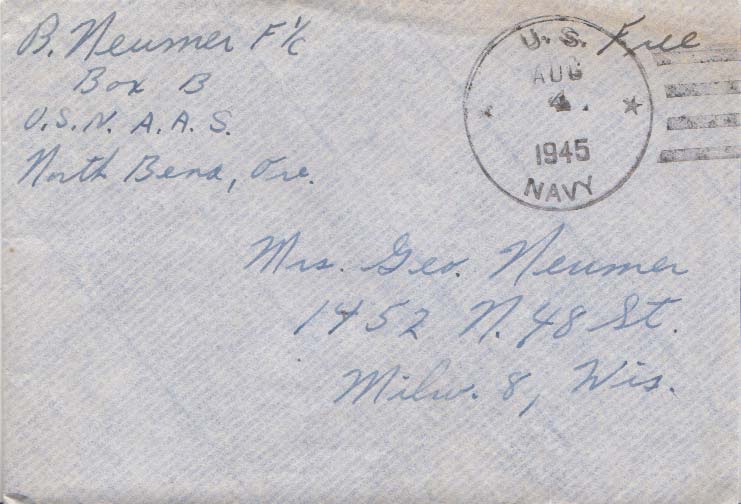 B. Neumer F 1/c
Box B
U.S.N. A.A.S.
North Bend, Ore.
U.S.
AUG
4
1945
NAVY
Free
Mrs. Geo. Neumer
1452 N. 48 St.
Milw. 8, Wis.